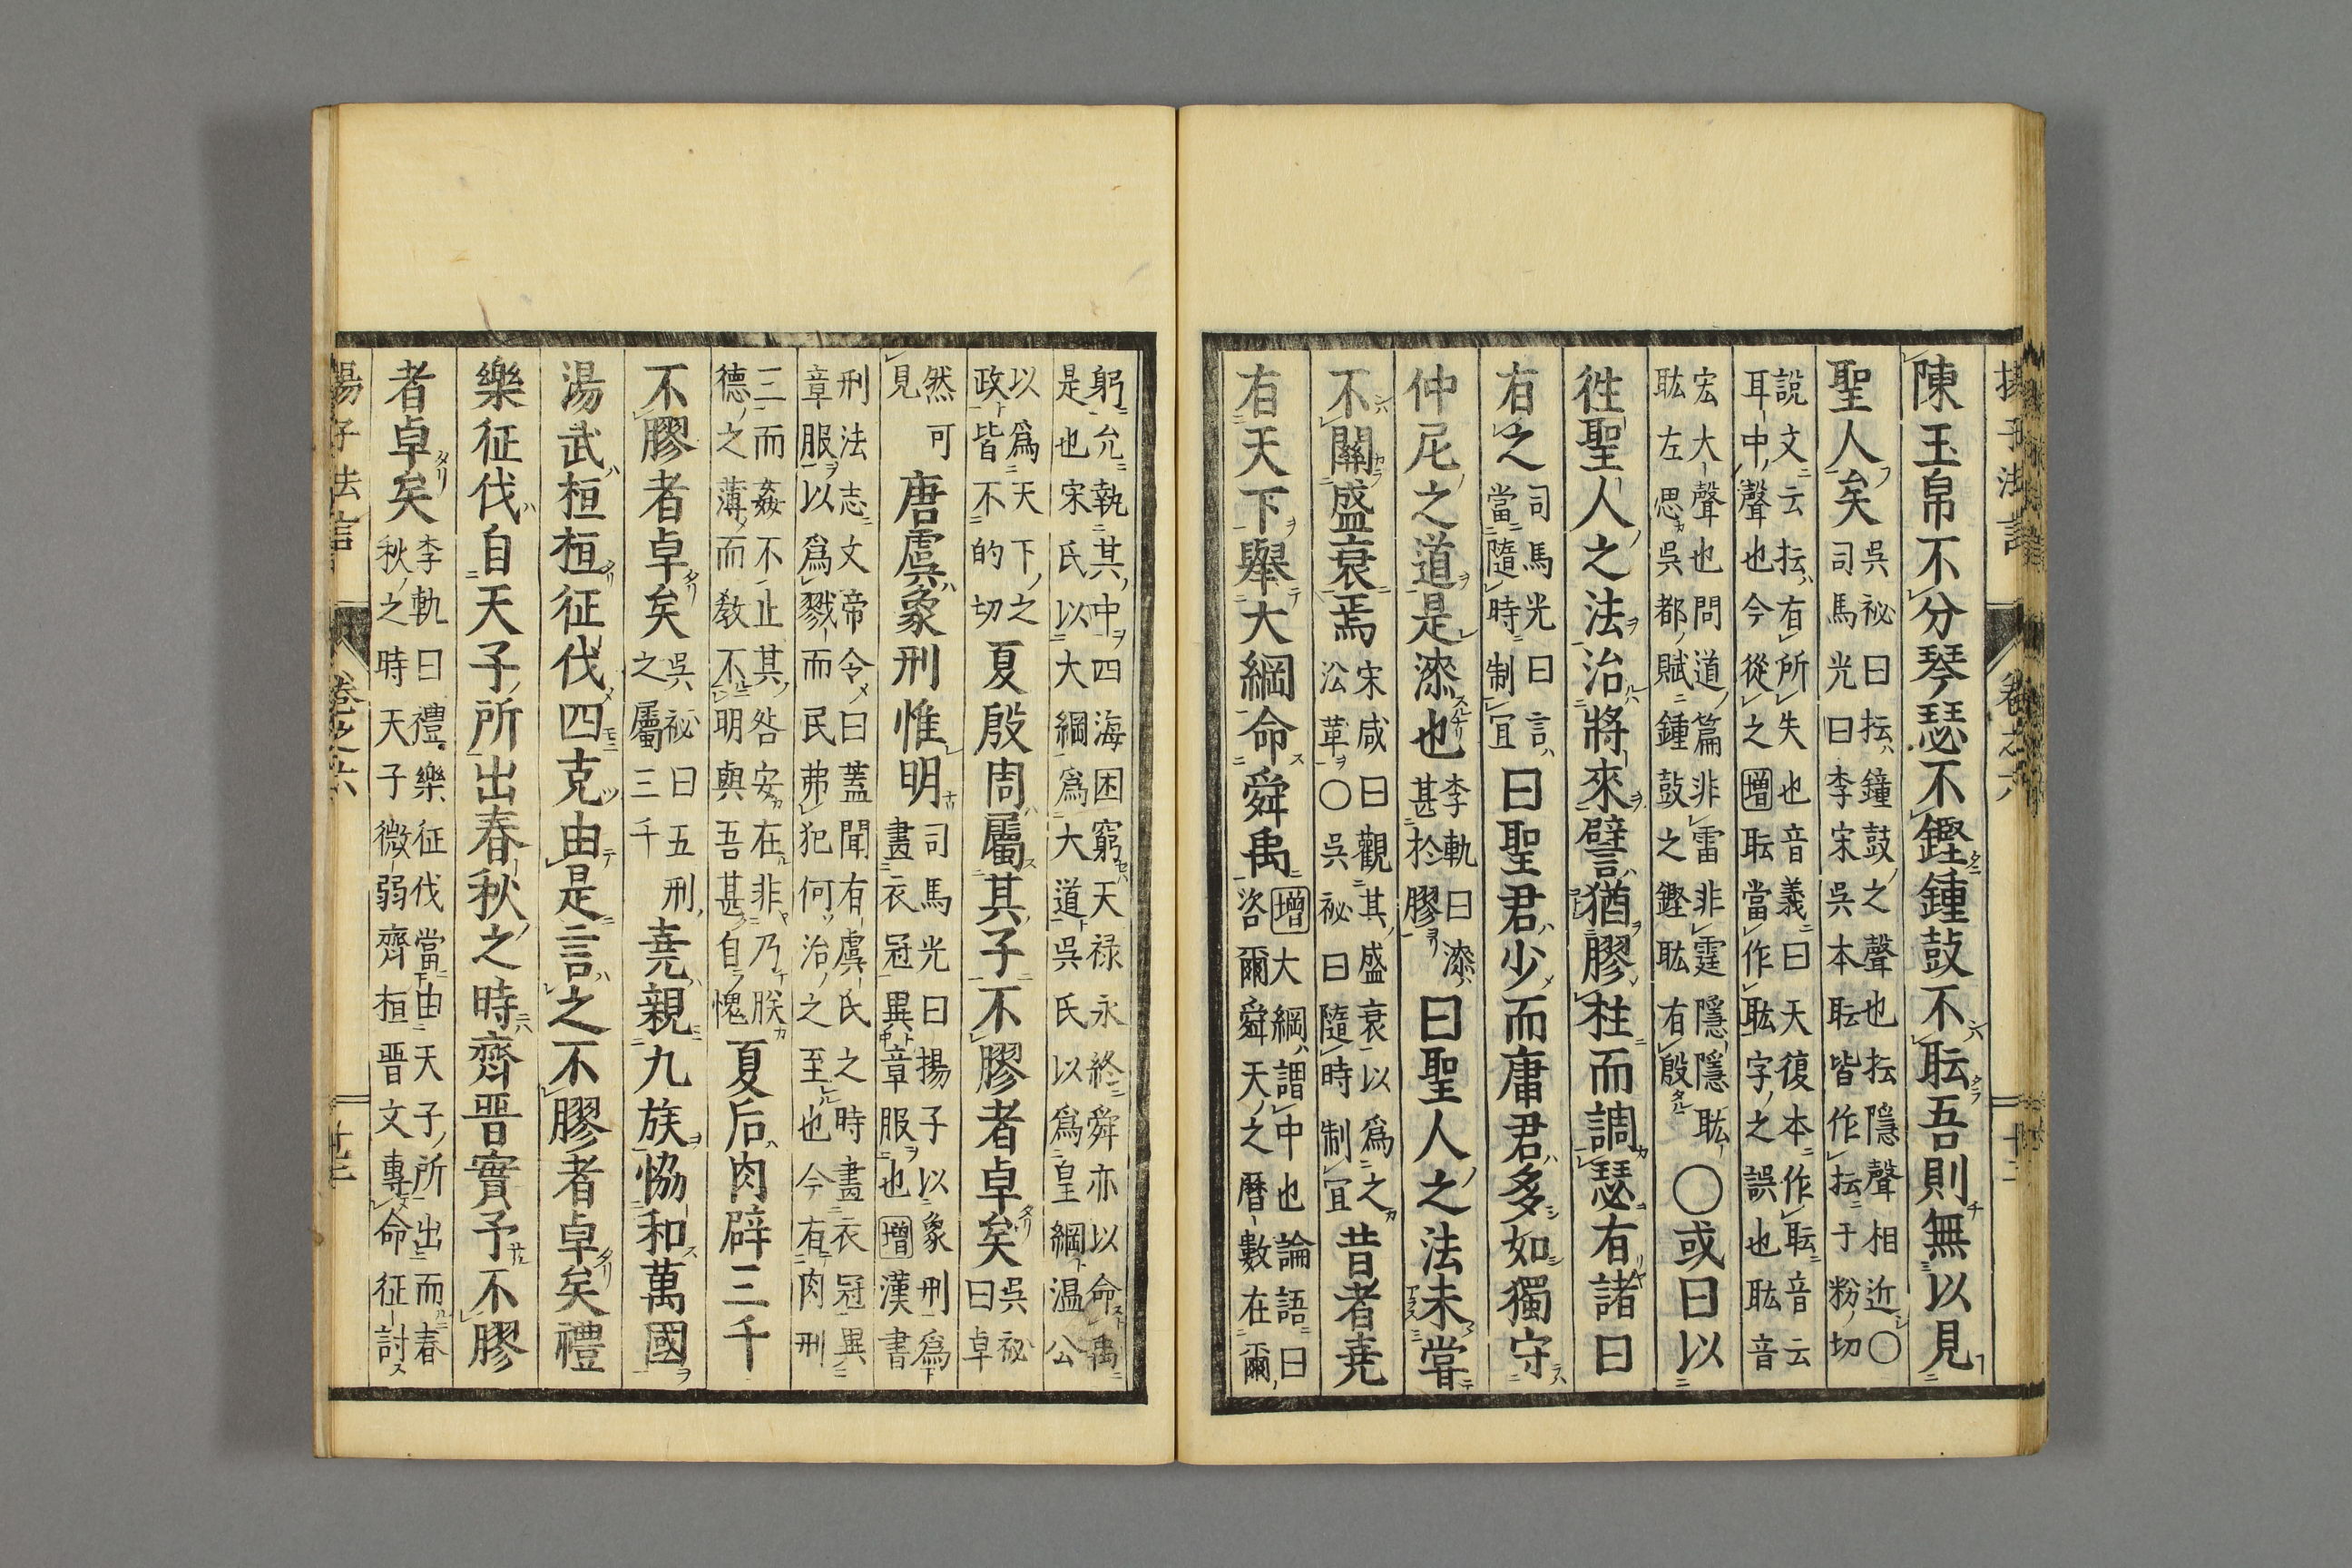 揚子法言 卷之六 十二
陳玉帛不分琴瑟不鏗鍾鼓不耺吾則無以見
聖人矣 吳祕曰抎鐘鼓之聲也抎隱聲相近〇
司馬光曰李宋吳本耺皆作抎于粉切
說文云抎有所失也音義曰天復本作耺音云
耳中聲也今從之増耺當作耾字之誤也耾音
宏大聲也問道篇非雷非霆隱隱耾
耾左思吳都賦鍾鼓之鏗耾有殷 〇或曰以
徃聖人之法治將來譬猶膠柱而調瑟有諸曰
有之 司馬光曰言
當隨時制冝 曰聖君少而庸君多如獨守
仲尼之道是漆也 李軌曰漆
甚於膠 曰聖人之法未嘗
不關盛衰焉 宋咸曰觀其盛衰以爲之
㳂革〇吳祕曰隨時制冝 昔者堯
有天下舉大綱命舜禹 増大綱謂中也論語曰
咨爾舜天之曆數在爾
躬允執其中四海困窮天禄永終舜亦以命禹
是也宋氏以大綱爲大道吳氏以爲皇綱温公
以爲天下之
政皆不的切 夏殷周屬其子不膠者卓矣 吳祕
曰卓
然可
見 唐虞象刑惟明 司馬光曰揚子以象刑爲
畫衣冠異章服也増漢書
刑法志文帝令曰蓋聞有虞氏之時畫衣冠異
章服以爲戮而民弗犯何治之至也今有肉刑
三而姦不止其咎安在非乃朕
德之薄而敎不明與吾甚自愧 夏后肉辟三千
不膠者卓矣 吳祕曰五刑
之屬三千 堯親九族恊和萬國
湯武桓桓征伐四克由是言之不膠者卓矣禮
樂征伐自天子所出春秋之時齊晋實予不膠
者卓矣 李軌曰禮樂征伐當由天子所出而春
秋之時天子微弱齊桓晋文專命征討
揚子法言 卷之六 十三